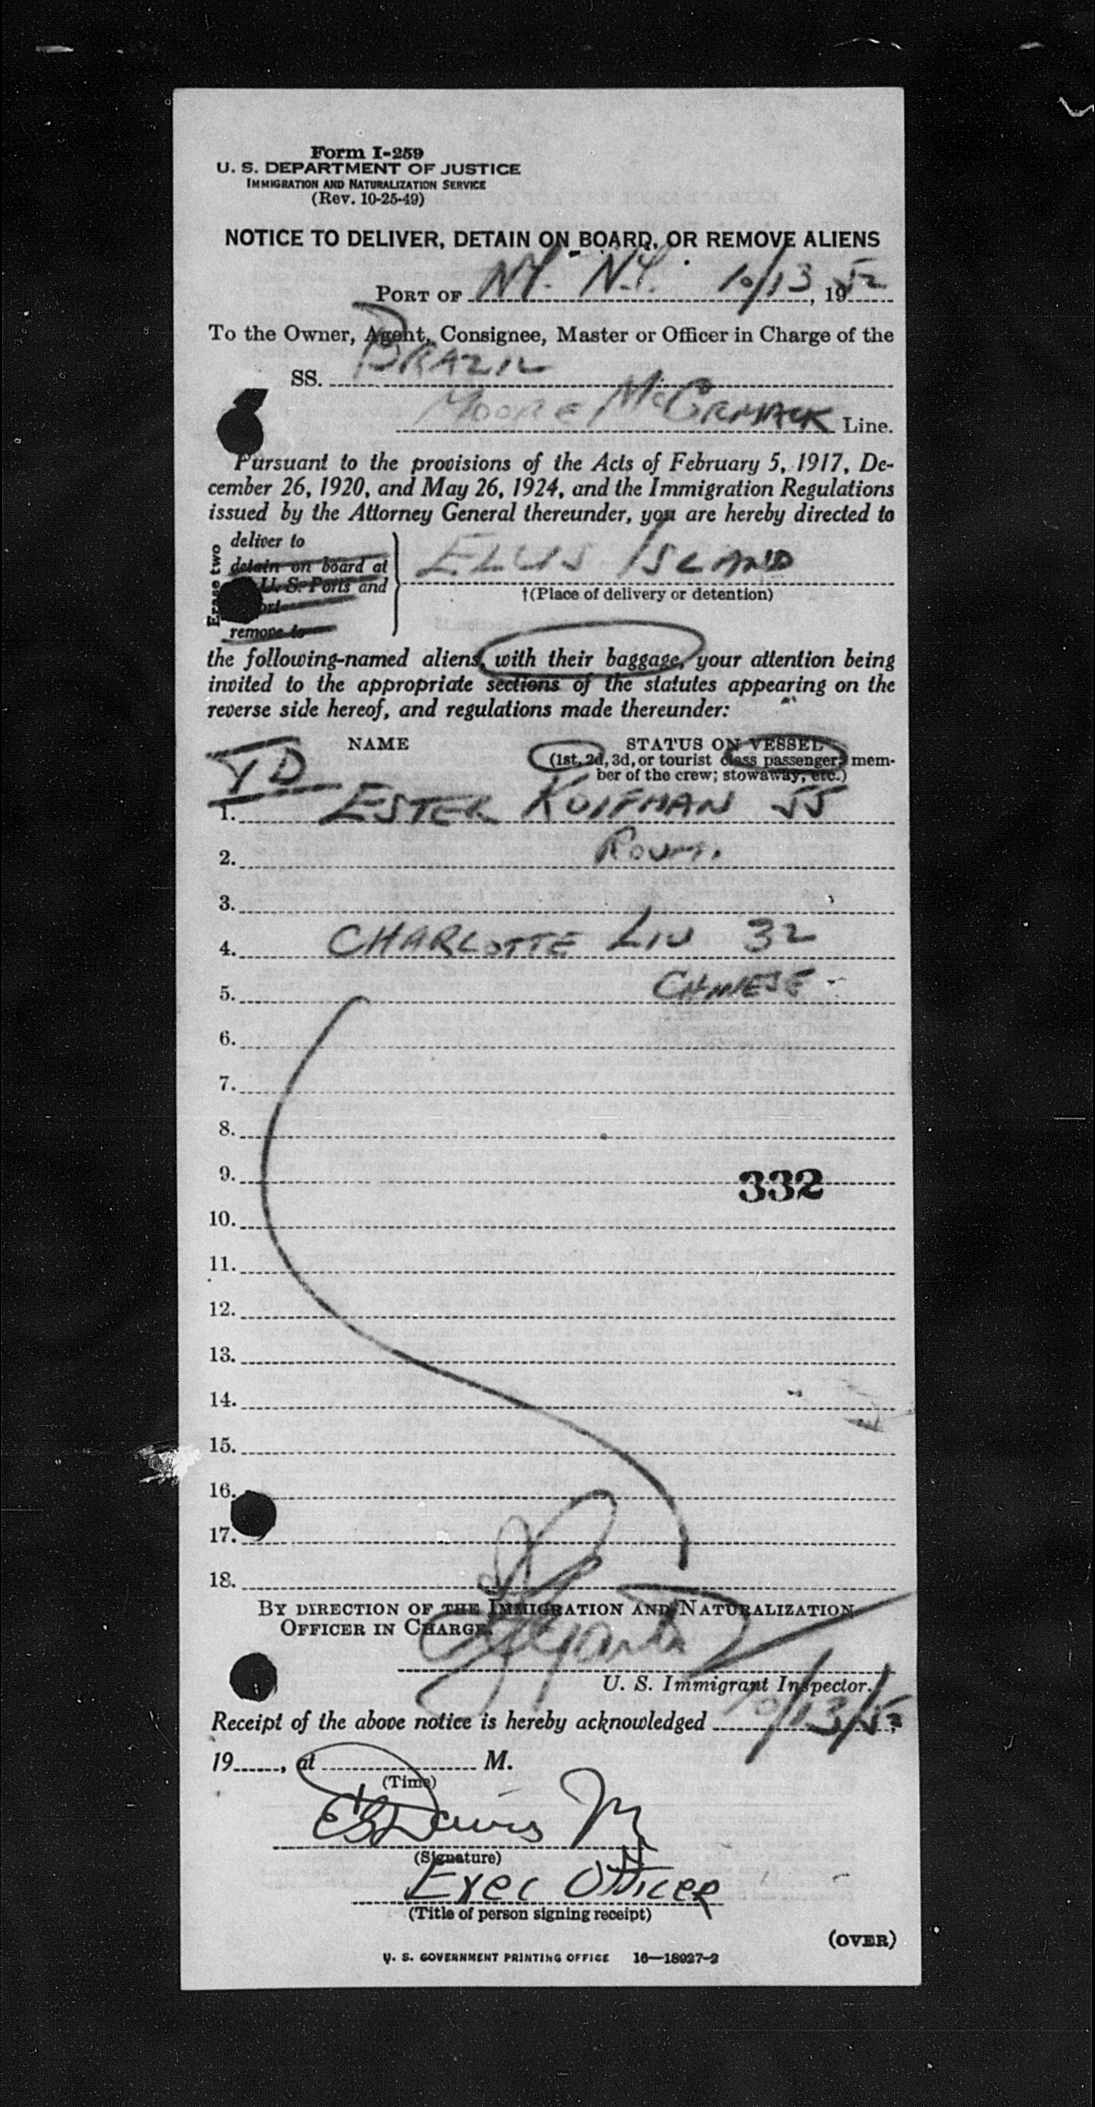 Form I-259
U. S. DEPARTMENT OF JUSTICE
IMMIGRATION AND NATURALIZATION SERVICE
(Rev. 10-25-49)
NOTICE TO DELIVER, DETAIN ON BOARD, OR REMOVE ALIENS
PORT OF N.Y. N.Y. 10/13, 1952
To the Owner, Agent, Consignee, Master or Officer in Charge of the
SS. BRAZIL
MOORE McCORMACK Line.
Pursuant to the provisions of the Acts of February 5, 1917, De-
cember 26, 1920, and May 26, 1924, and the Immigration Regulations
issued by the Attorney General thereunder, you are hereby directed to
Erase two
deliver to
detain on board at
U. S. Ports and
remove to
ELLIS ISLAND
†(Place of delivery or detention)
the following-named aliens, with their baggage, your attention being
invited to the appropriate sections of the statutes appearing on the
reverse side hereof, and regulations made thereunder:
NAME
STATUS ON VESSEL
(1st, 2d, 3d, or tourist class passenger; mem-
ber of the crew; stowaway, etc.)
TD
1. ESTER KOIFMAN 55
2. Roum.
3.
4. CHARLOTTE LIU 32
5. CHINESE
6.
7.
8.
9. 332
10.
11.
12.
13.
14.
15.
16.
17.
18.
BY DIRECTION OF THE IMMIGRATION AND NATURALIZATION
OFFICER IN CHARGE.
U. S. Immigrant Inspector.
Receipt of the above notice is hereby acknowledged 10/13/52,
19......, at M.
(Time)
(Signature)
Exec Officer
(Title of person signing receipt)
(OVER)
U. S. GOVERNMENT PRINTING OFFICE 16—18927-2